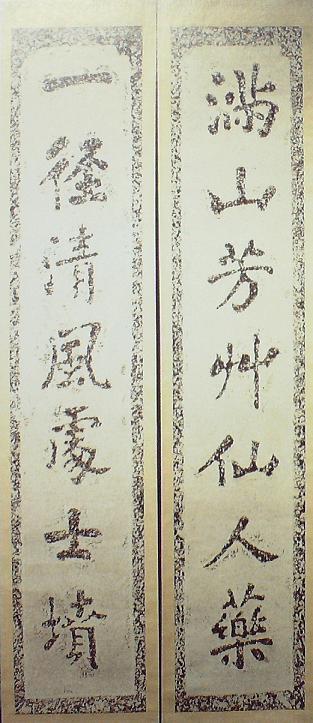 滿山芳艸仙人藥
一徑清風處士墳